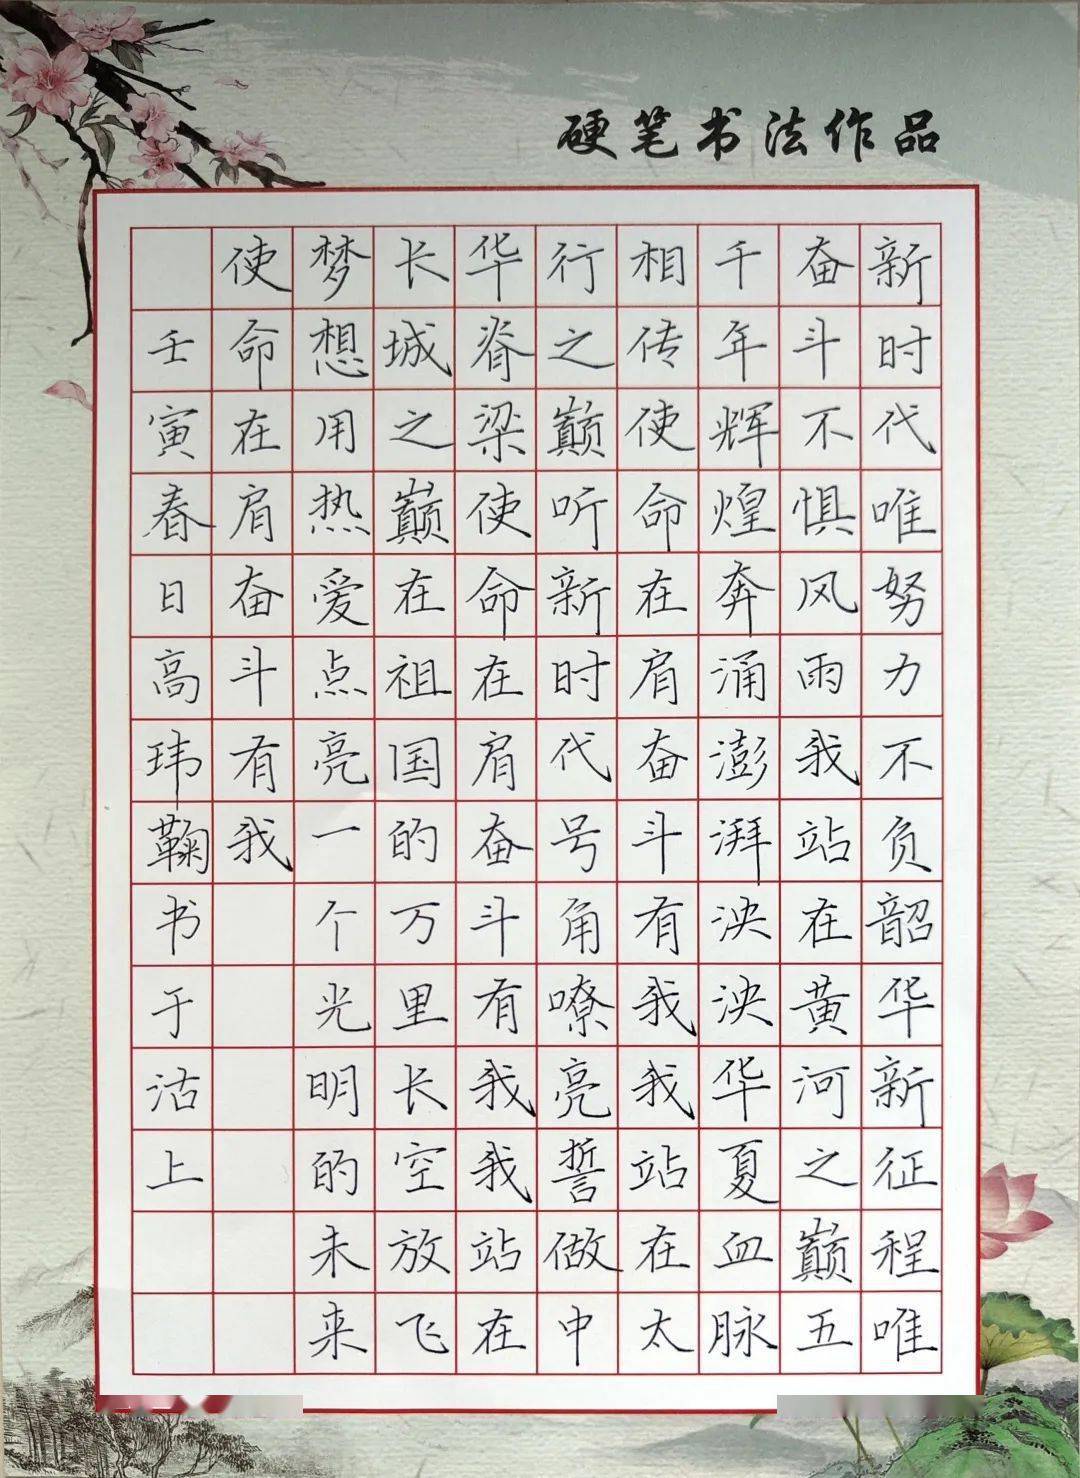 硬笔书法作品
新时代唯努力不负韶华新征程唯
奋斗不惧风雨我站在黄河之巅五
千年辉煌奔涌澎湃泱泱华夏血脉
相传使命在肩奋斗有我我站在太
行之巅听新时代号角嘹亮誓做中
华脊梁使命在肩奋斗有我我站在
长城之巅在祖国的万里长空放飞
梦想用热爱点亮一个光明的未来
使命在肩奋斗有我
壬寅春日高玮鞠书于沽上